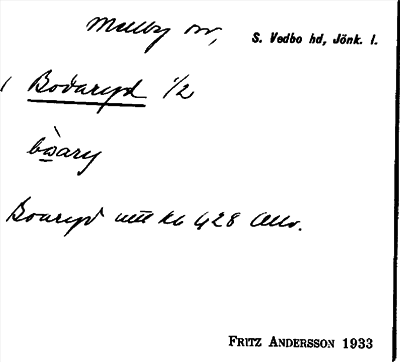 Mellby sn, S. Vedbo hd, Jönk. l.
1 Bodaryd 1/2
bòary
Boaryd utt kb 428 Allv.
FRITZ ANDERSSON 1933